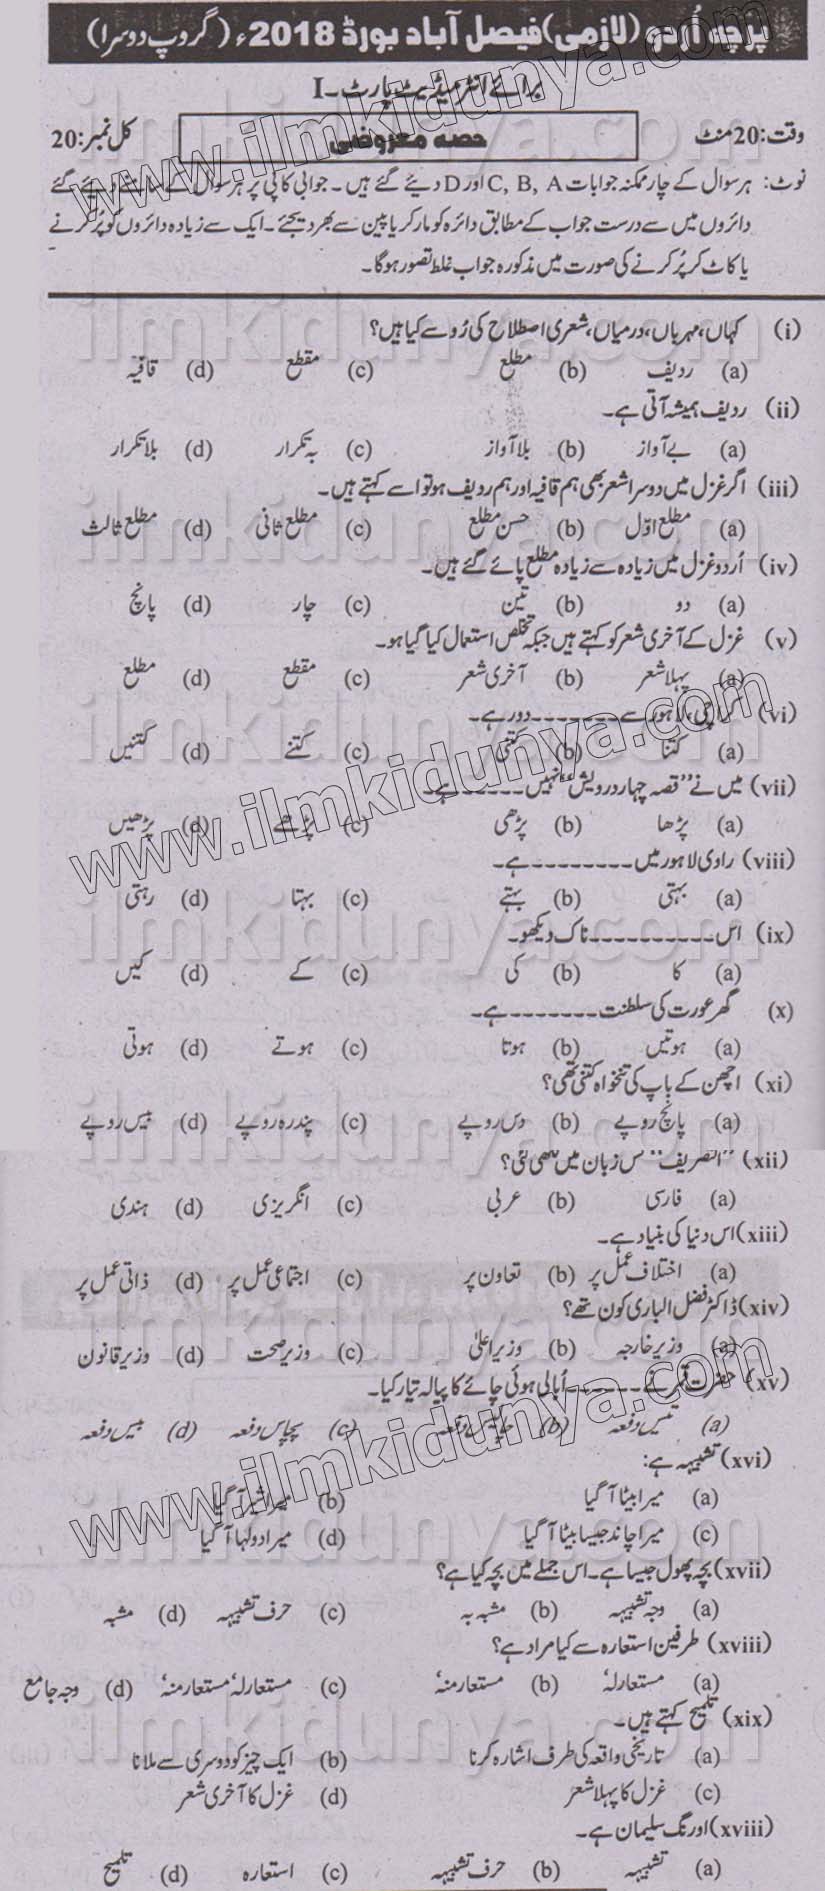 پرچہ اُردو (لازمی) فیصل آباد بورڈ 2018ء (گروپ دوسرا)
برائے انٹرمیڈیٹ پارٹ۔I
وقت: 20 منٹ حصہ معروضی کل نمبر: 20
نوٹ: ہر سوال کے چار ممکنہ جوابات C, B, A اور D دیئے گئے ہیں۔ جوابی کاپی پر ہر سوال کے سامنے دیئے گئے
دائروں میں سے درست جواب کے مطابق دائرہ کو مارکر یا پین سے بھر دیجئے۔ ایک سے زیادہ دائروں کو پُر کرنے
یا کاٹ کر پُر کرنے کی صورت میں مذکورہ جواب غلط تصور ہوگا۔
(i) کہاں، مہرباں، درمیاں، شعری اصطلاح کی رُو سے کیا ہیں؟
(a) ردیف (b) مطلع (c) مقطع (d) قافیہ
(ii) ردیف ہمیشہ آتی ہے۔
(a) بے آواز (b) بلا آواز (c) بہ تکرار (d) بلا تکرار
(iii) اگر غزل میں دوسرا شعر بھی ہم قافیہ اور ہم ردیف ہو تو اسے کہتے ہیں۔
(a) مطلع اوّل (b) حسن مطلع (c) مطلع ثانی (d) مطلع ثالث
(iv) اُردو غزل میں زیادہ سے زیادہ مطلع پائے گئے ہیں۔
(a) دو (b) تین (c) چار (d) پانچ
(v) غزل کے آخری شعر کو کہتے ہیں جبکہ تخلص استعمال کیا گیا ہو۔
(a) پہلا شعر (b) آخری شعر (c) مقطع (d) مطلع
(vi) کراچی، لاہور سے ------- دور ہے۔
(a) کتنا (b) کتنی (c) کتنے (d) کتنیں
(vii) میں نے "قصہ چہار درویش" نہیں ------ ہے۔
(a) پڑھا (b) پڑھی (c) پڑھے (d) پڑھیں
(viii) راوی لاہور میں --------- ہے۔
(a) بہتی (b) بہتے (c) بہتا (d) رہتی
(ix) اس ---------- ناک دیکھو۔
(a) کا (b) کی (c) کے (d) کیں
(x) گھر عورت کی سلطنت -------- ہے۔
(a) ہوتیں (b) ہوتا (c) ہوتے (d) ہوتی
(xi) اچھن کے باپ کی تنخواہ کتنی تھی؟
(a) پانچ روپے (b) دس روپے (c) پندرہ روپے (d) بیس روپے
(xii) "التصریف" کس زبان میں لکھی گئی؟
(a) فارسی (b) عربی (c) انگریزی (d) ہندی
(xiii) اس دنیا کی بنیاد ہے۔
(a) اختلاف عمل پر (b) تعاون پر (c) اجتماعی عمل پر (d) ذاتی عمل پر
(xiv) ڈاکٹر فضل الباری کون تھے؟
(a) وزیر خارجہ (b) وزیر اعلیٰ (c) وزیر صحت (d) وزیر قانون
(xv) حضرت قمر نے ------- اُبالی ہوئی چائے کا پیالہ تیار کیا۔
(a) تیس دفعہ (b) چالیس دفعہ (c) پچاس دفعہ (d) بیس دفعہ
(xvi) تشبیہہ ہے:
(a) میرا بیٹا آ گیا (b) میرا شیر آ گیا
(c) میرا چاند جیسا بیٹا آ گیا (d) میرا دولہا آ گیا
(xvii) بچہ پھول جیسا ہے۔ اس جملے میں بچہ کیا ہے؟
(a) وجہ تشبیہہ (b) مشبہ بہ (c) حرف تشبیہہ (d) مشبہ
(xviii) طرفین استعارہ سے کیا مراد ہے؟
(a) مستعارلہٗ (b) مستعار منہٗ (c) مستعارلہٗ مستعار منہٗ (d) وجہ جامع
(xix) تلمیح کہتے ہیں۔
(a) تاریخی واقعہ کی طرف اشارہ کرنا (b) ایک چیز کو دوسری سے ملانا
(c) غزل کا پہلا شعر (d) غزل کا آخری شعر
(xviii) اورنگ سلیمان ہے۔
(a) تشبیہہ (b) حرف تشبیہہ (c) استعارہ (d) تلمیح
www.ilmkidunya.com
www.ilmkidunya.com
www.ilmkidunya.com